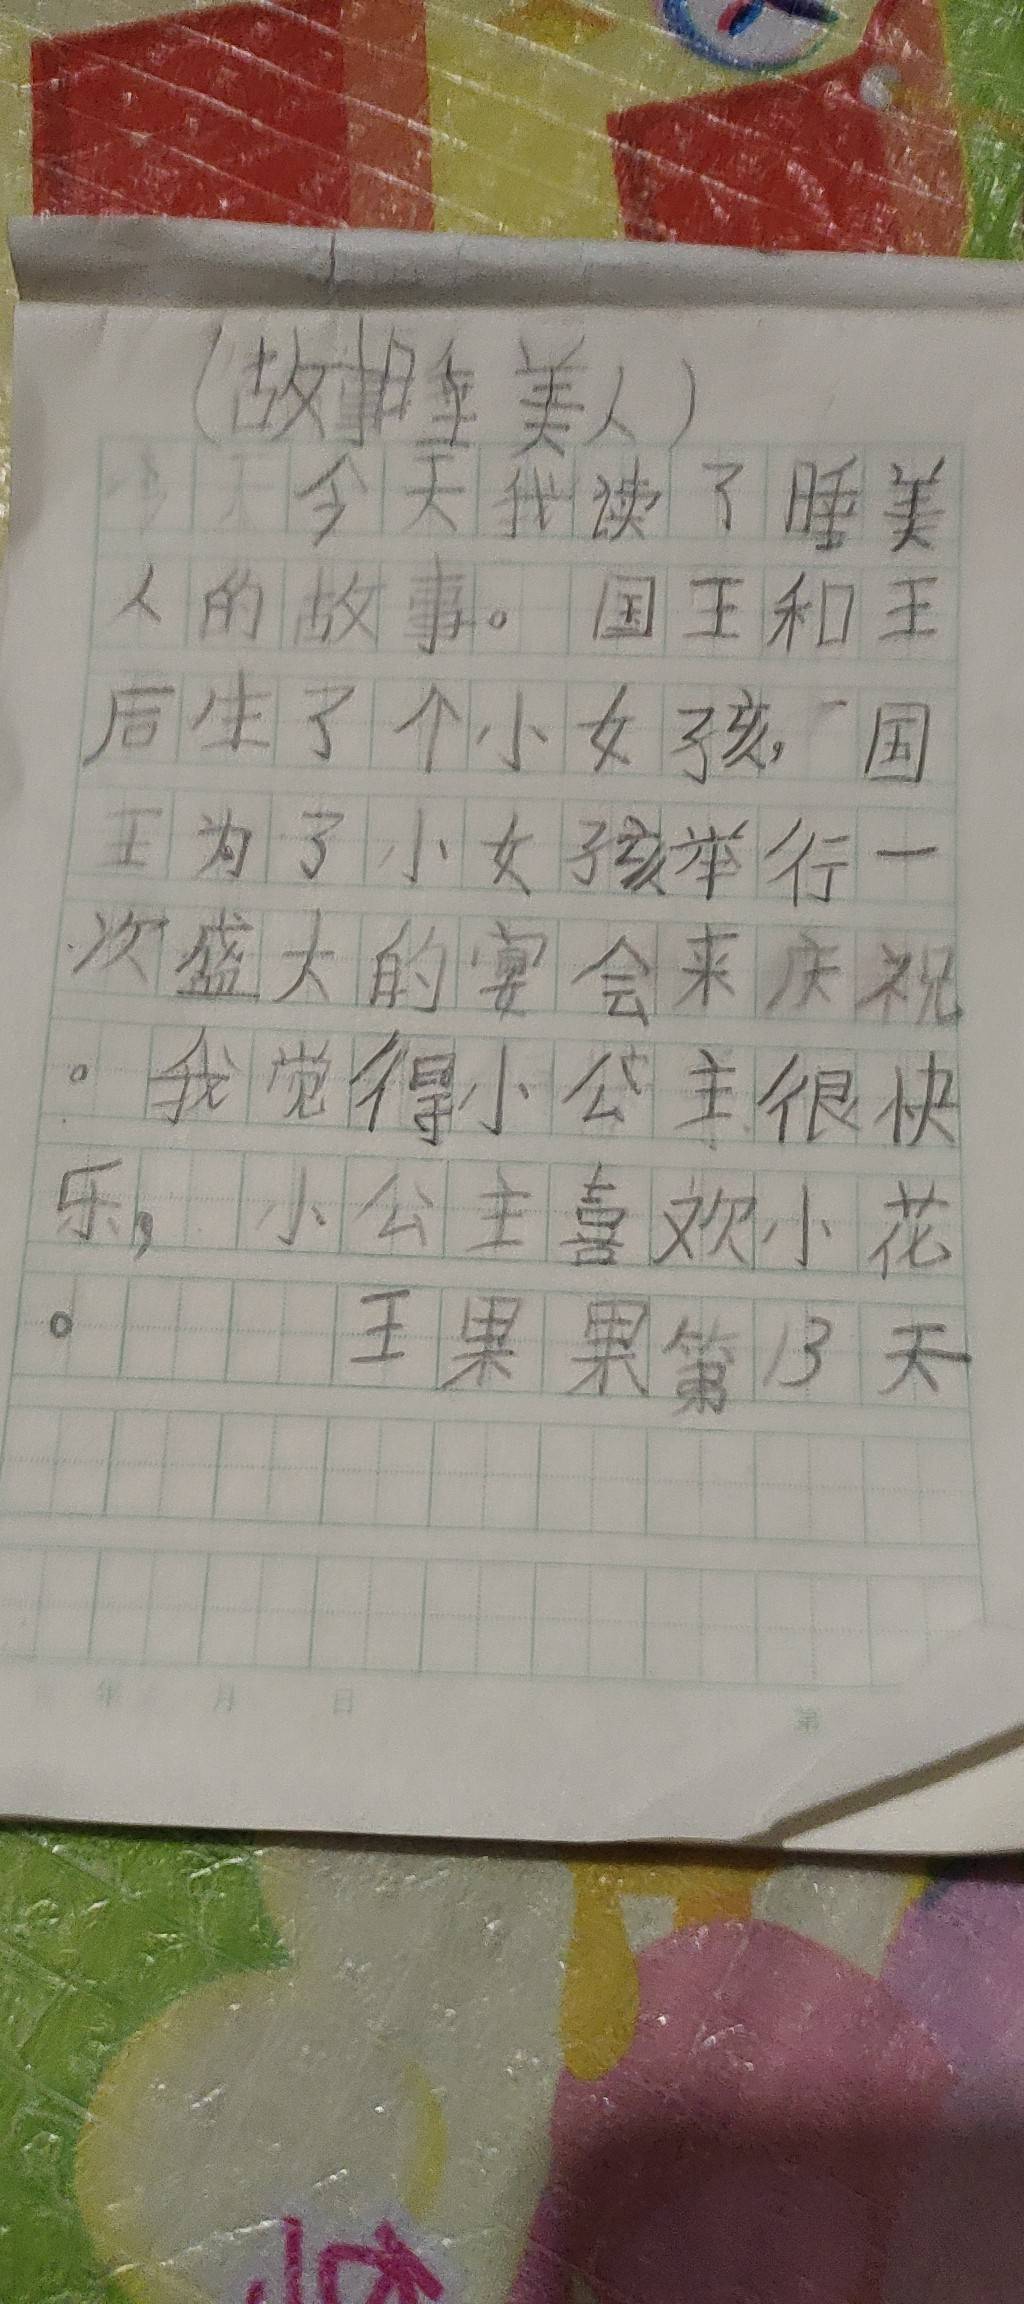 （故事睡美人）
今天我读了睡美
人的故事。国王和王
后生了个小女孩，国
王为了小女孩举行一
次盛大的宴会来庆祝
。我觉得小公主很快
乐，小公主喜欢小花
。王果果第13天
年 月 日 第